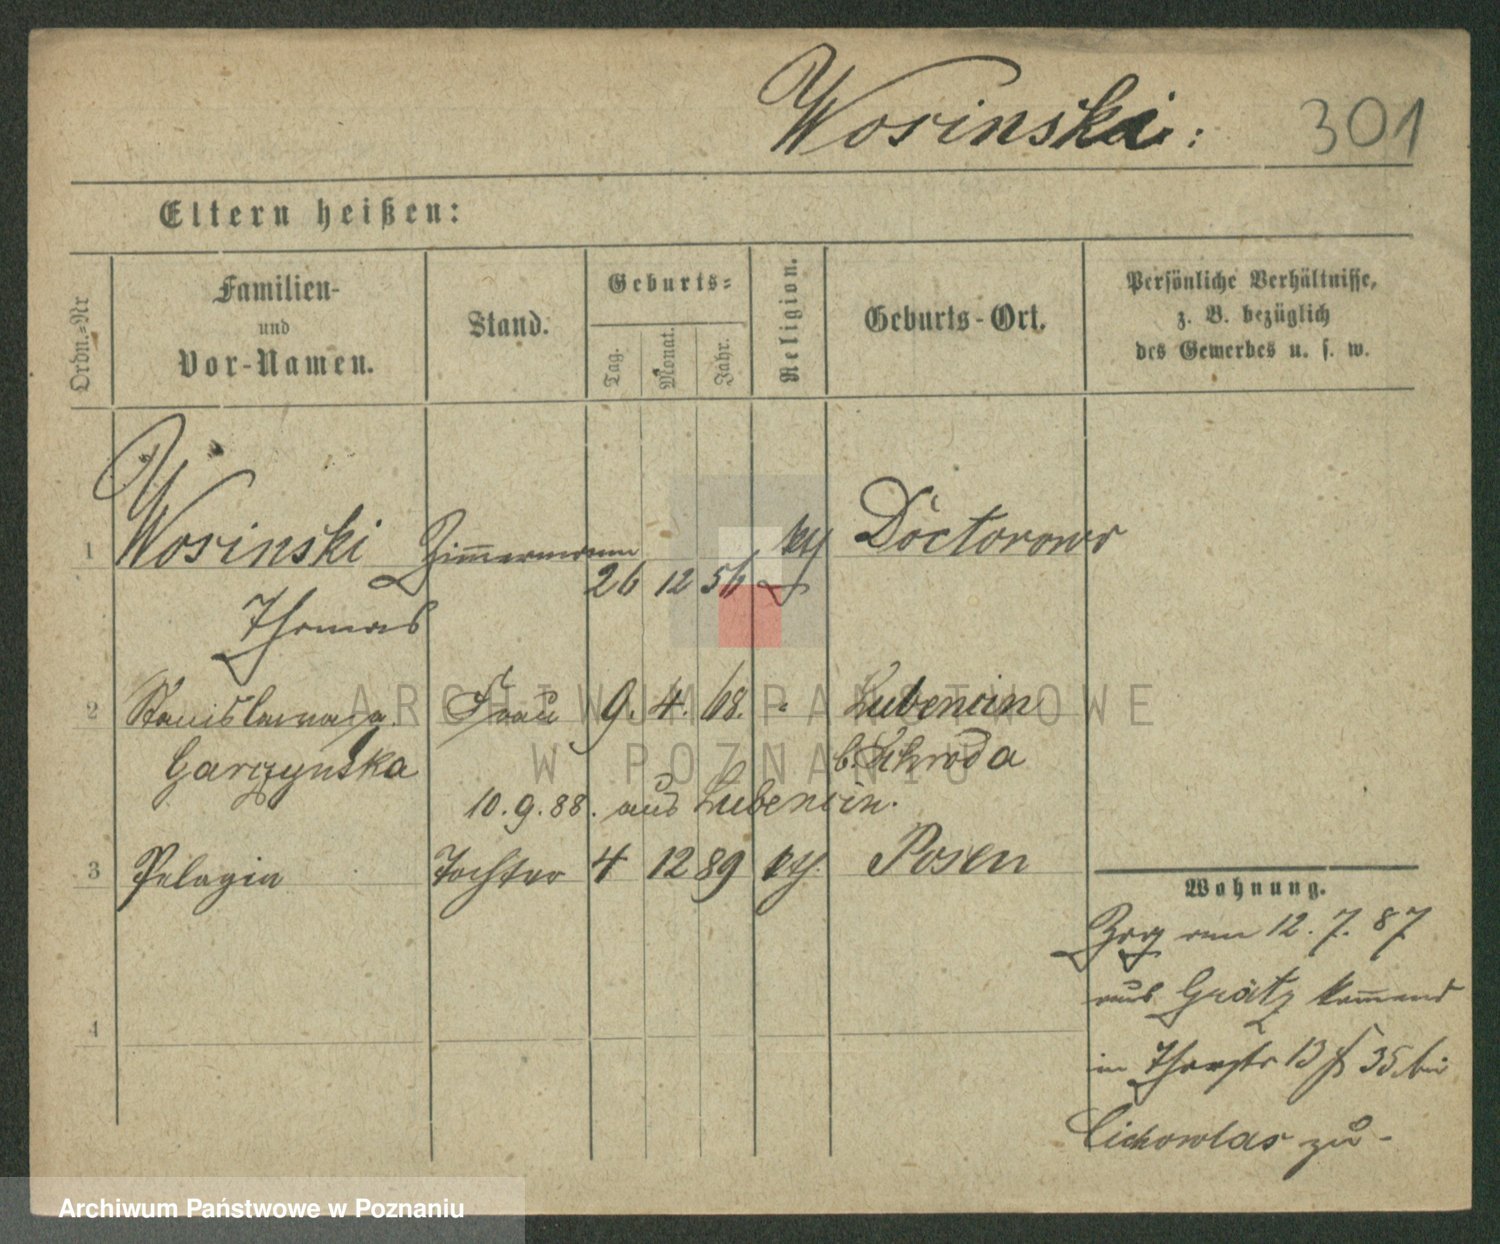 Wosinski: 301
Eltern heißen:
Ordn.=Nr
Familien-
und
Vor-Namen.
Stand.
Geburts=
Tag. Monat. Jahr.
Religion.
Geburts-Ort.
Persönliche Verhältnisse,
z. B. bezüglich
des Gewerbes u. s. w.
1 Wosinski Zimmermann 26 12 56 kth Doctorowo
Thomas
2 Stanislawa Frau 9. 4. 68. " Lubencin
Garczynska b. Schroda
10. 9. 88. aus Lubencin.
3 Pelagia Tochter 4 12 89 kth. Posen
4
Wohnung.
Zzg am 12. 7. 87
aus Grätz kom̅end
in Thorstr 13 35, bei
Cichowlas zu-
ARCHIWUM PAŃSTWOWE
W POZNANIU
Archiwum Państwowe w Poznaniu